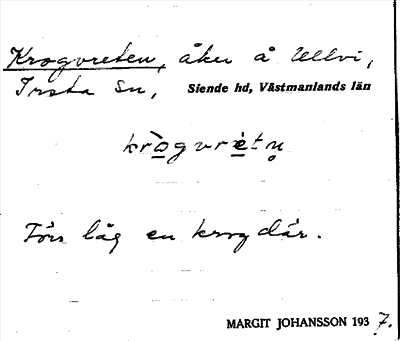 Krogvreten, åker å Ullvi,
Irsta sn, Siende hd, Västmanlands län
krògvrètn̥
Förr låg en krog där.
MARGIT JOHANSSON 1937.